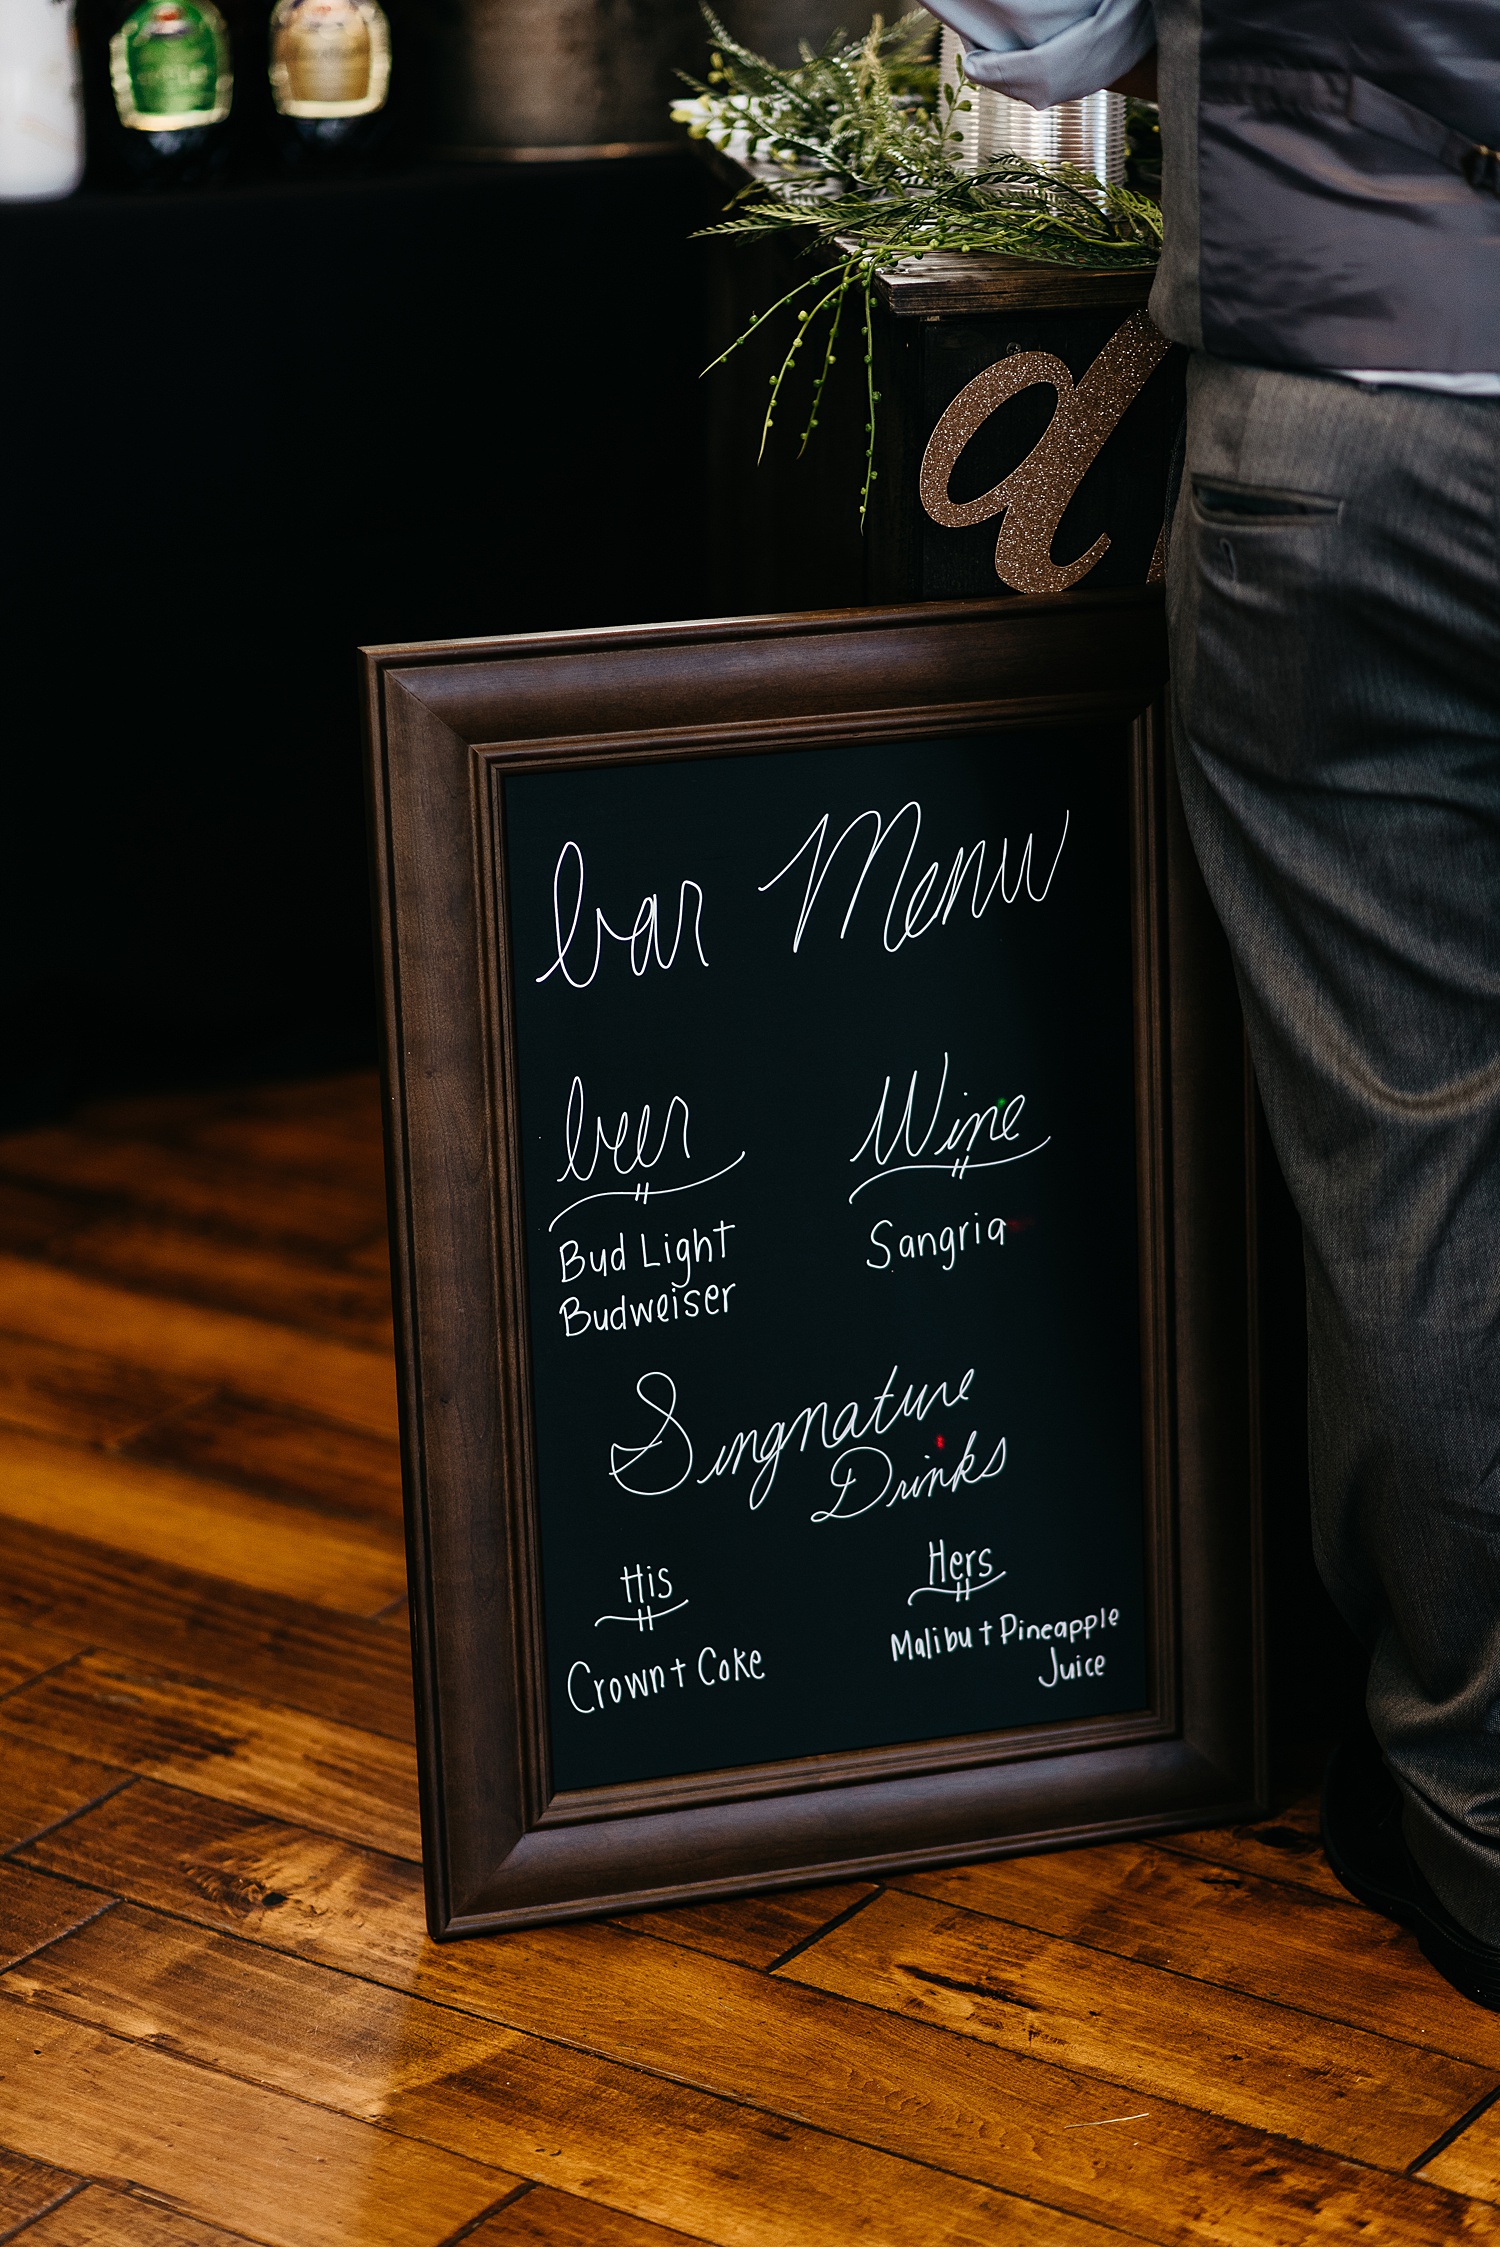 bar Menu
beer
Wine
Bud Light
Budweiser
Sangria
Singnature
Drinks
His
Hers
Crown + Coke
Malibu + Pineapple
Juice